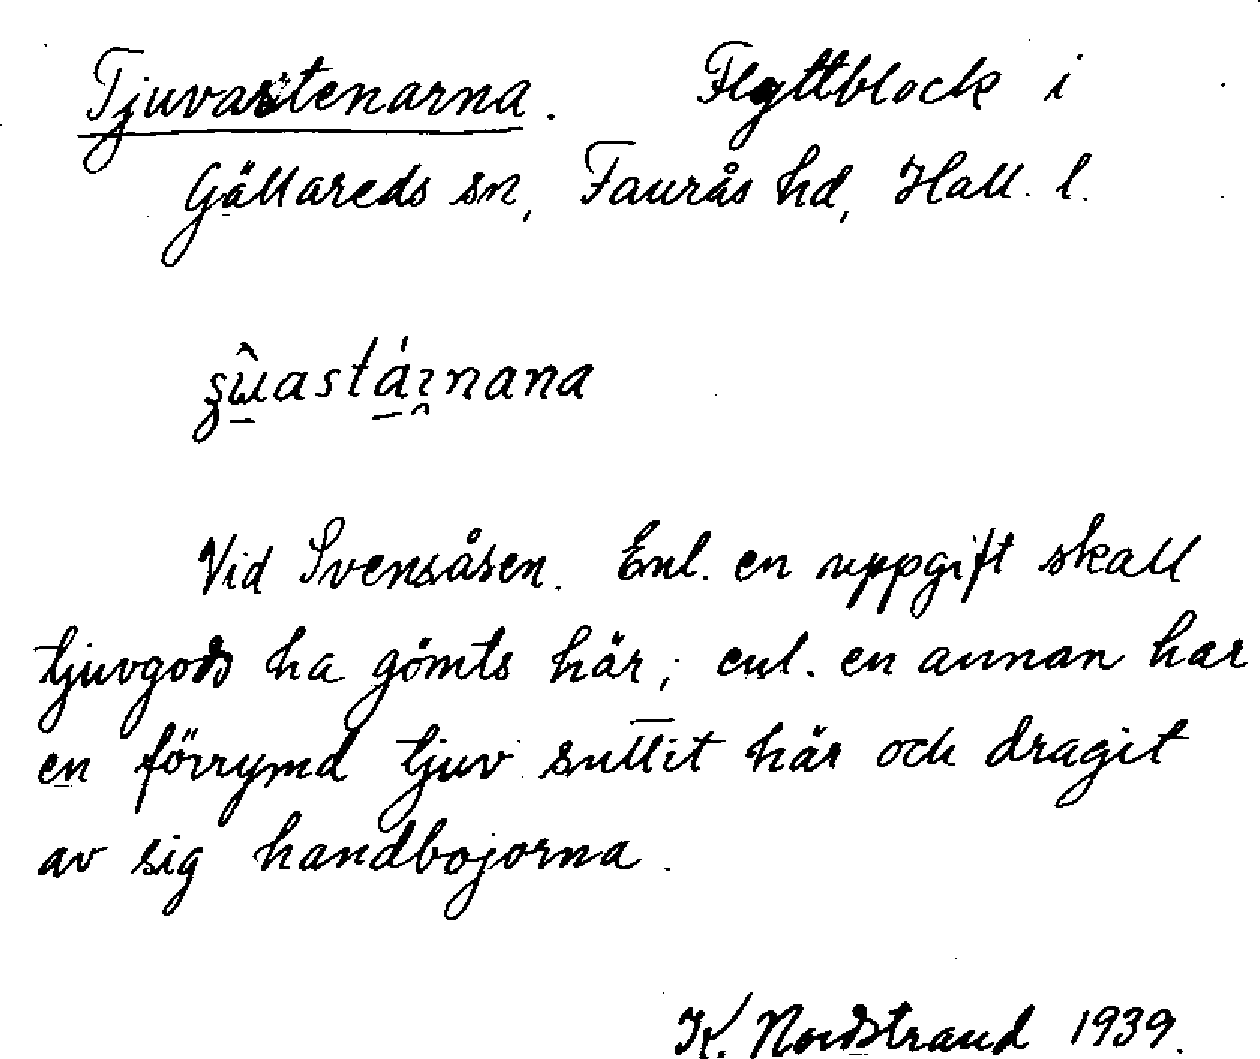 Tjuvastenarna. Flyttblock i
Gällareds sn, Faurås hd, Hall. l.
Vid Svensåsen. Enl. en uppgift skall
tjuvgods ha gömts här; enl. en annan har
en förrymd tjuv suttit här och dragit
av sig handbojorna.
K. Nordstrand 1939.